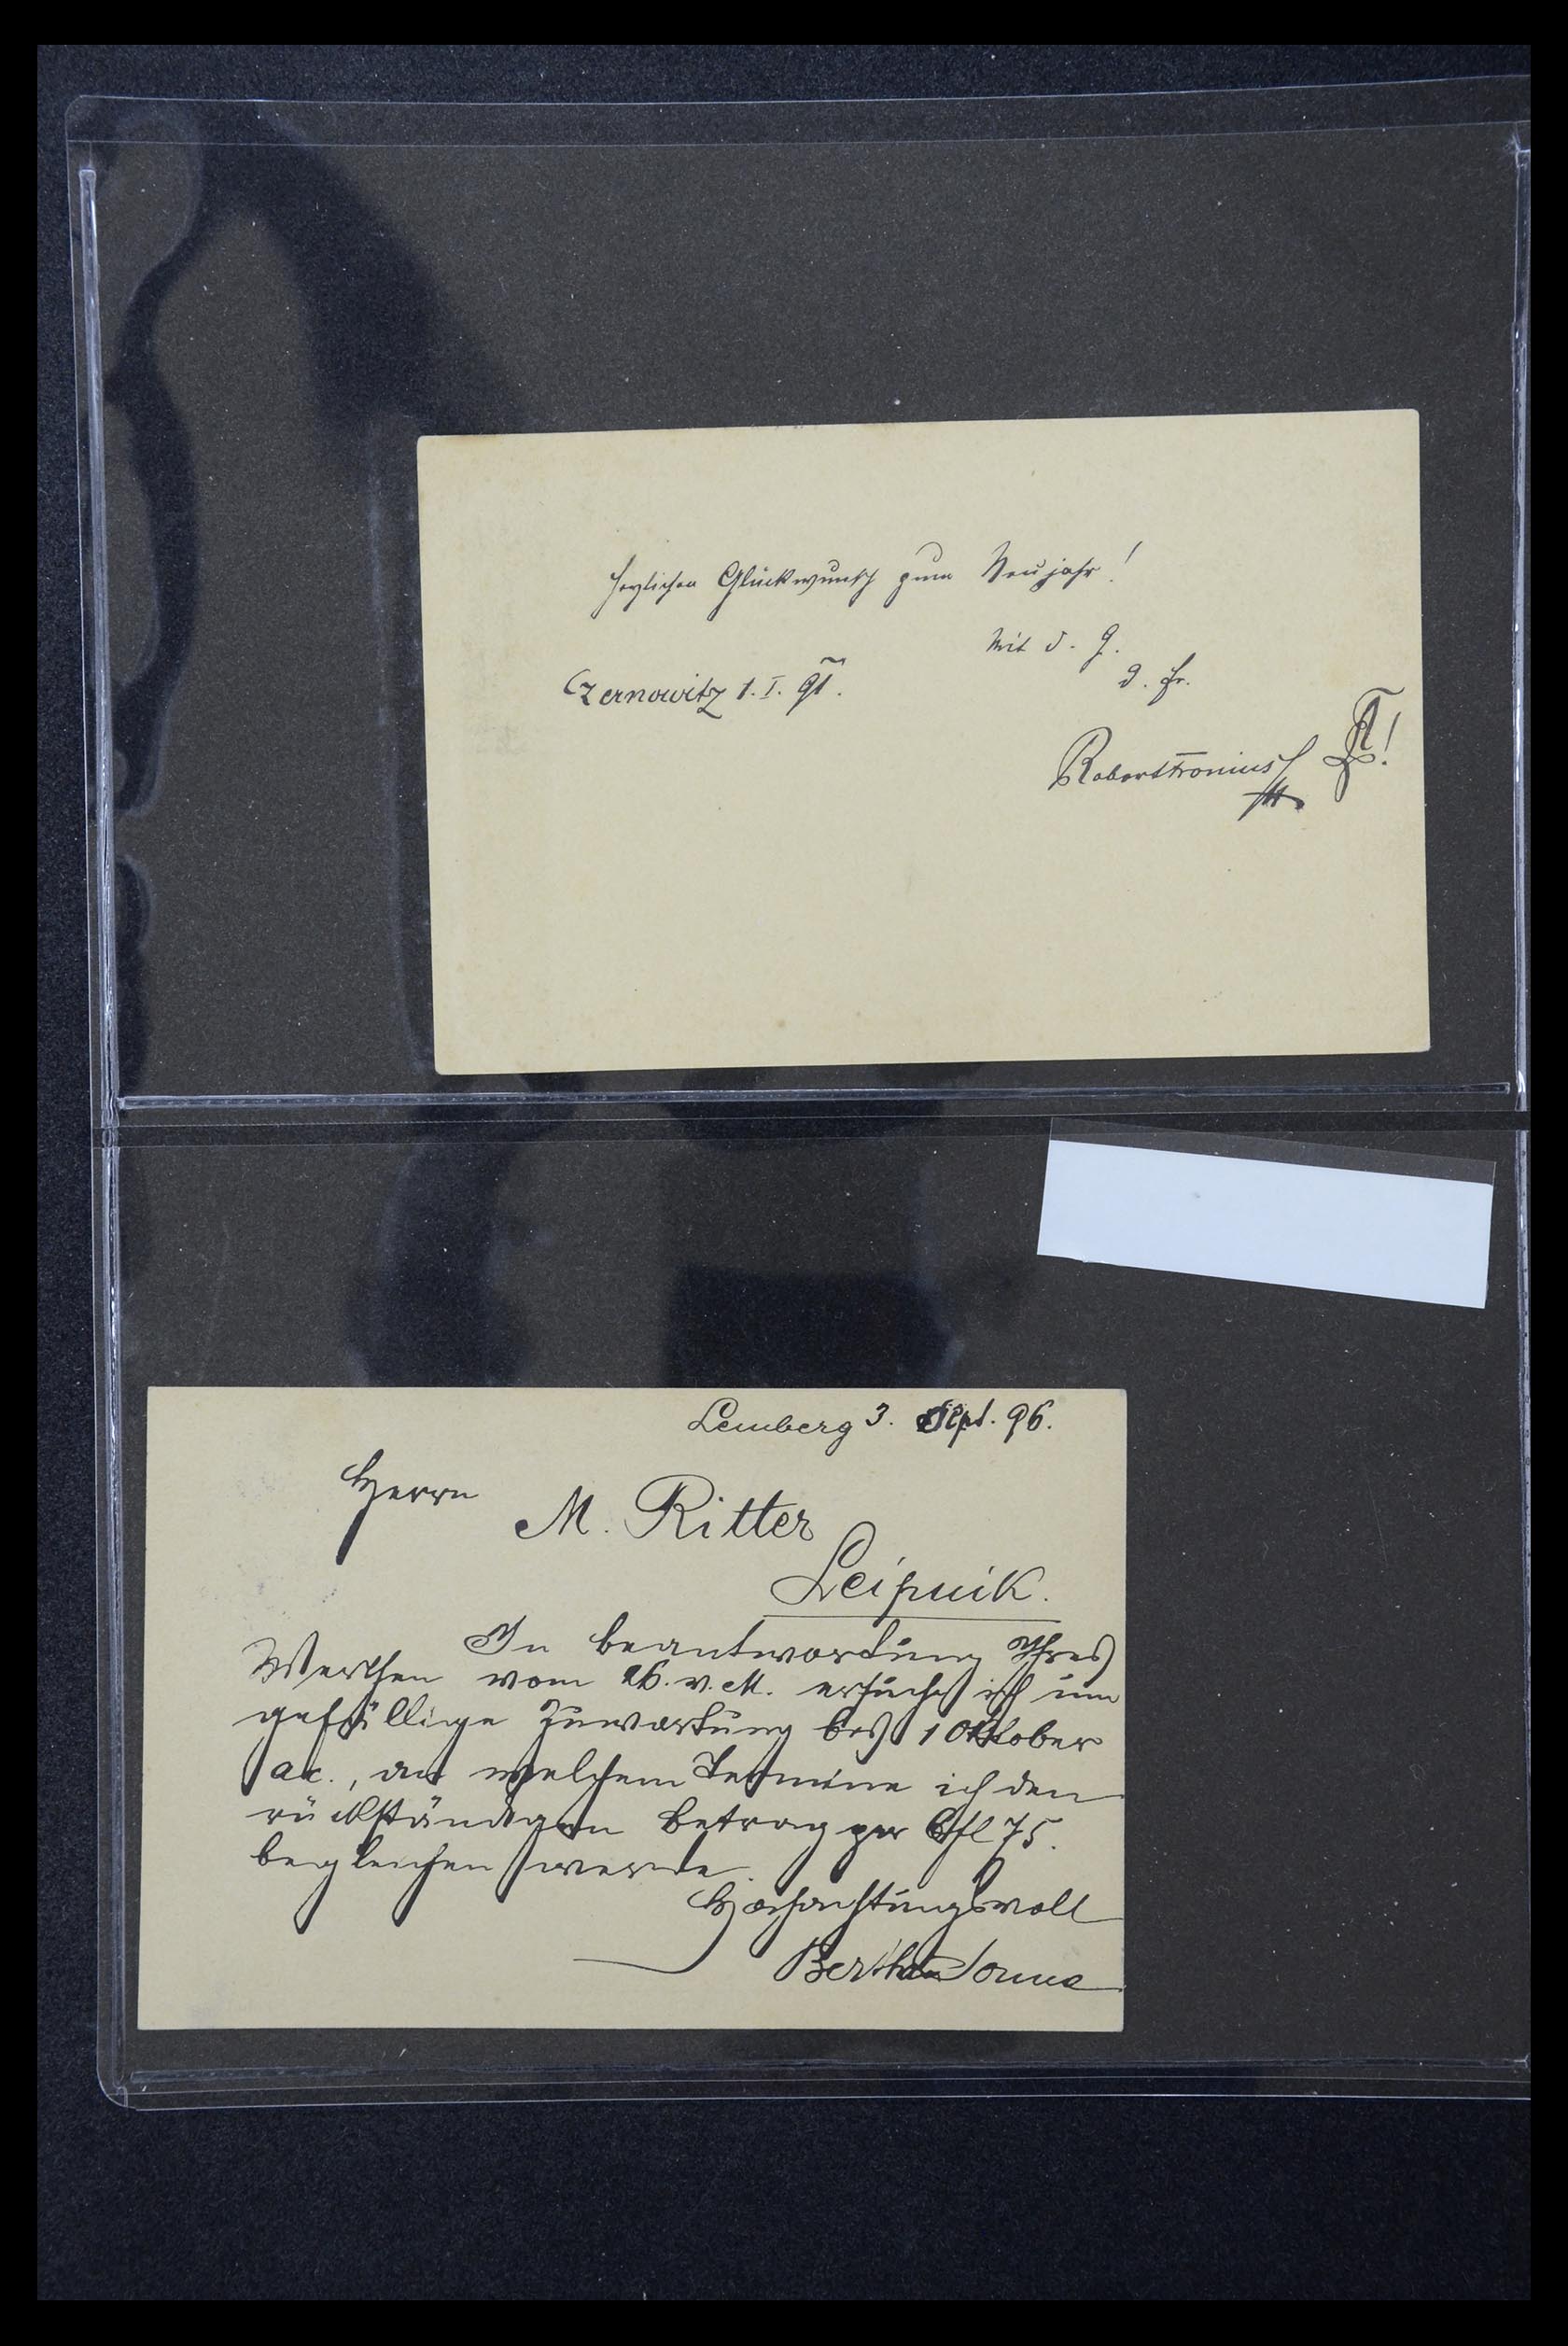 Herzlichen Glückwunsch zum Neujahr!
Mit d. G.
d. Fr.
Czernowitz 1. I. 91.
Robert Fronius
Lemberg 3. Sept. 96.
Herrn
M. Ritter
Leipnik.
In beantwortung Ihres
Werthen vom 26. v. M. ersuche ich um
gefällige Zuwartung bis 1 Oktober
ac., an welchem Termine ich den
rückständigen betrag per fl 75.
begleichen werde.
Hochachtungsvoll
Bertha Sonne